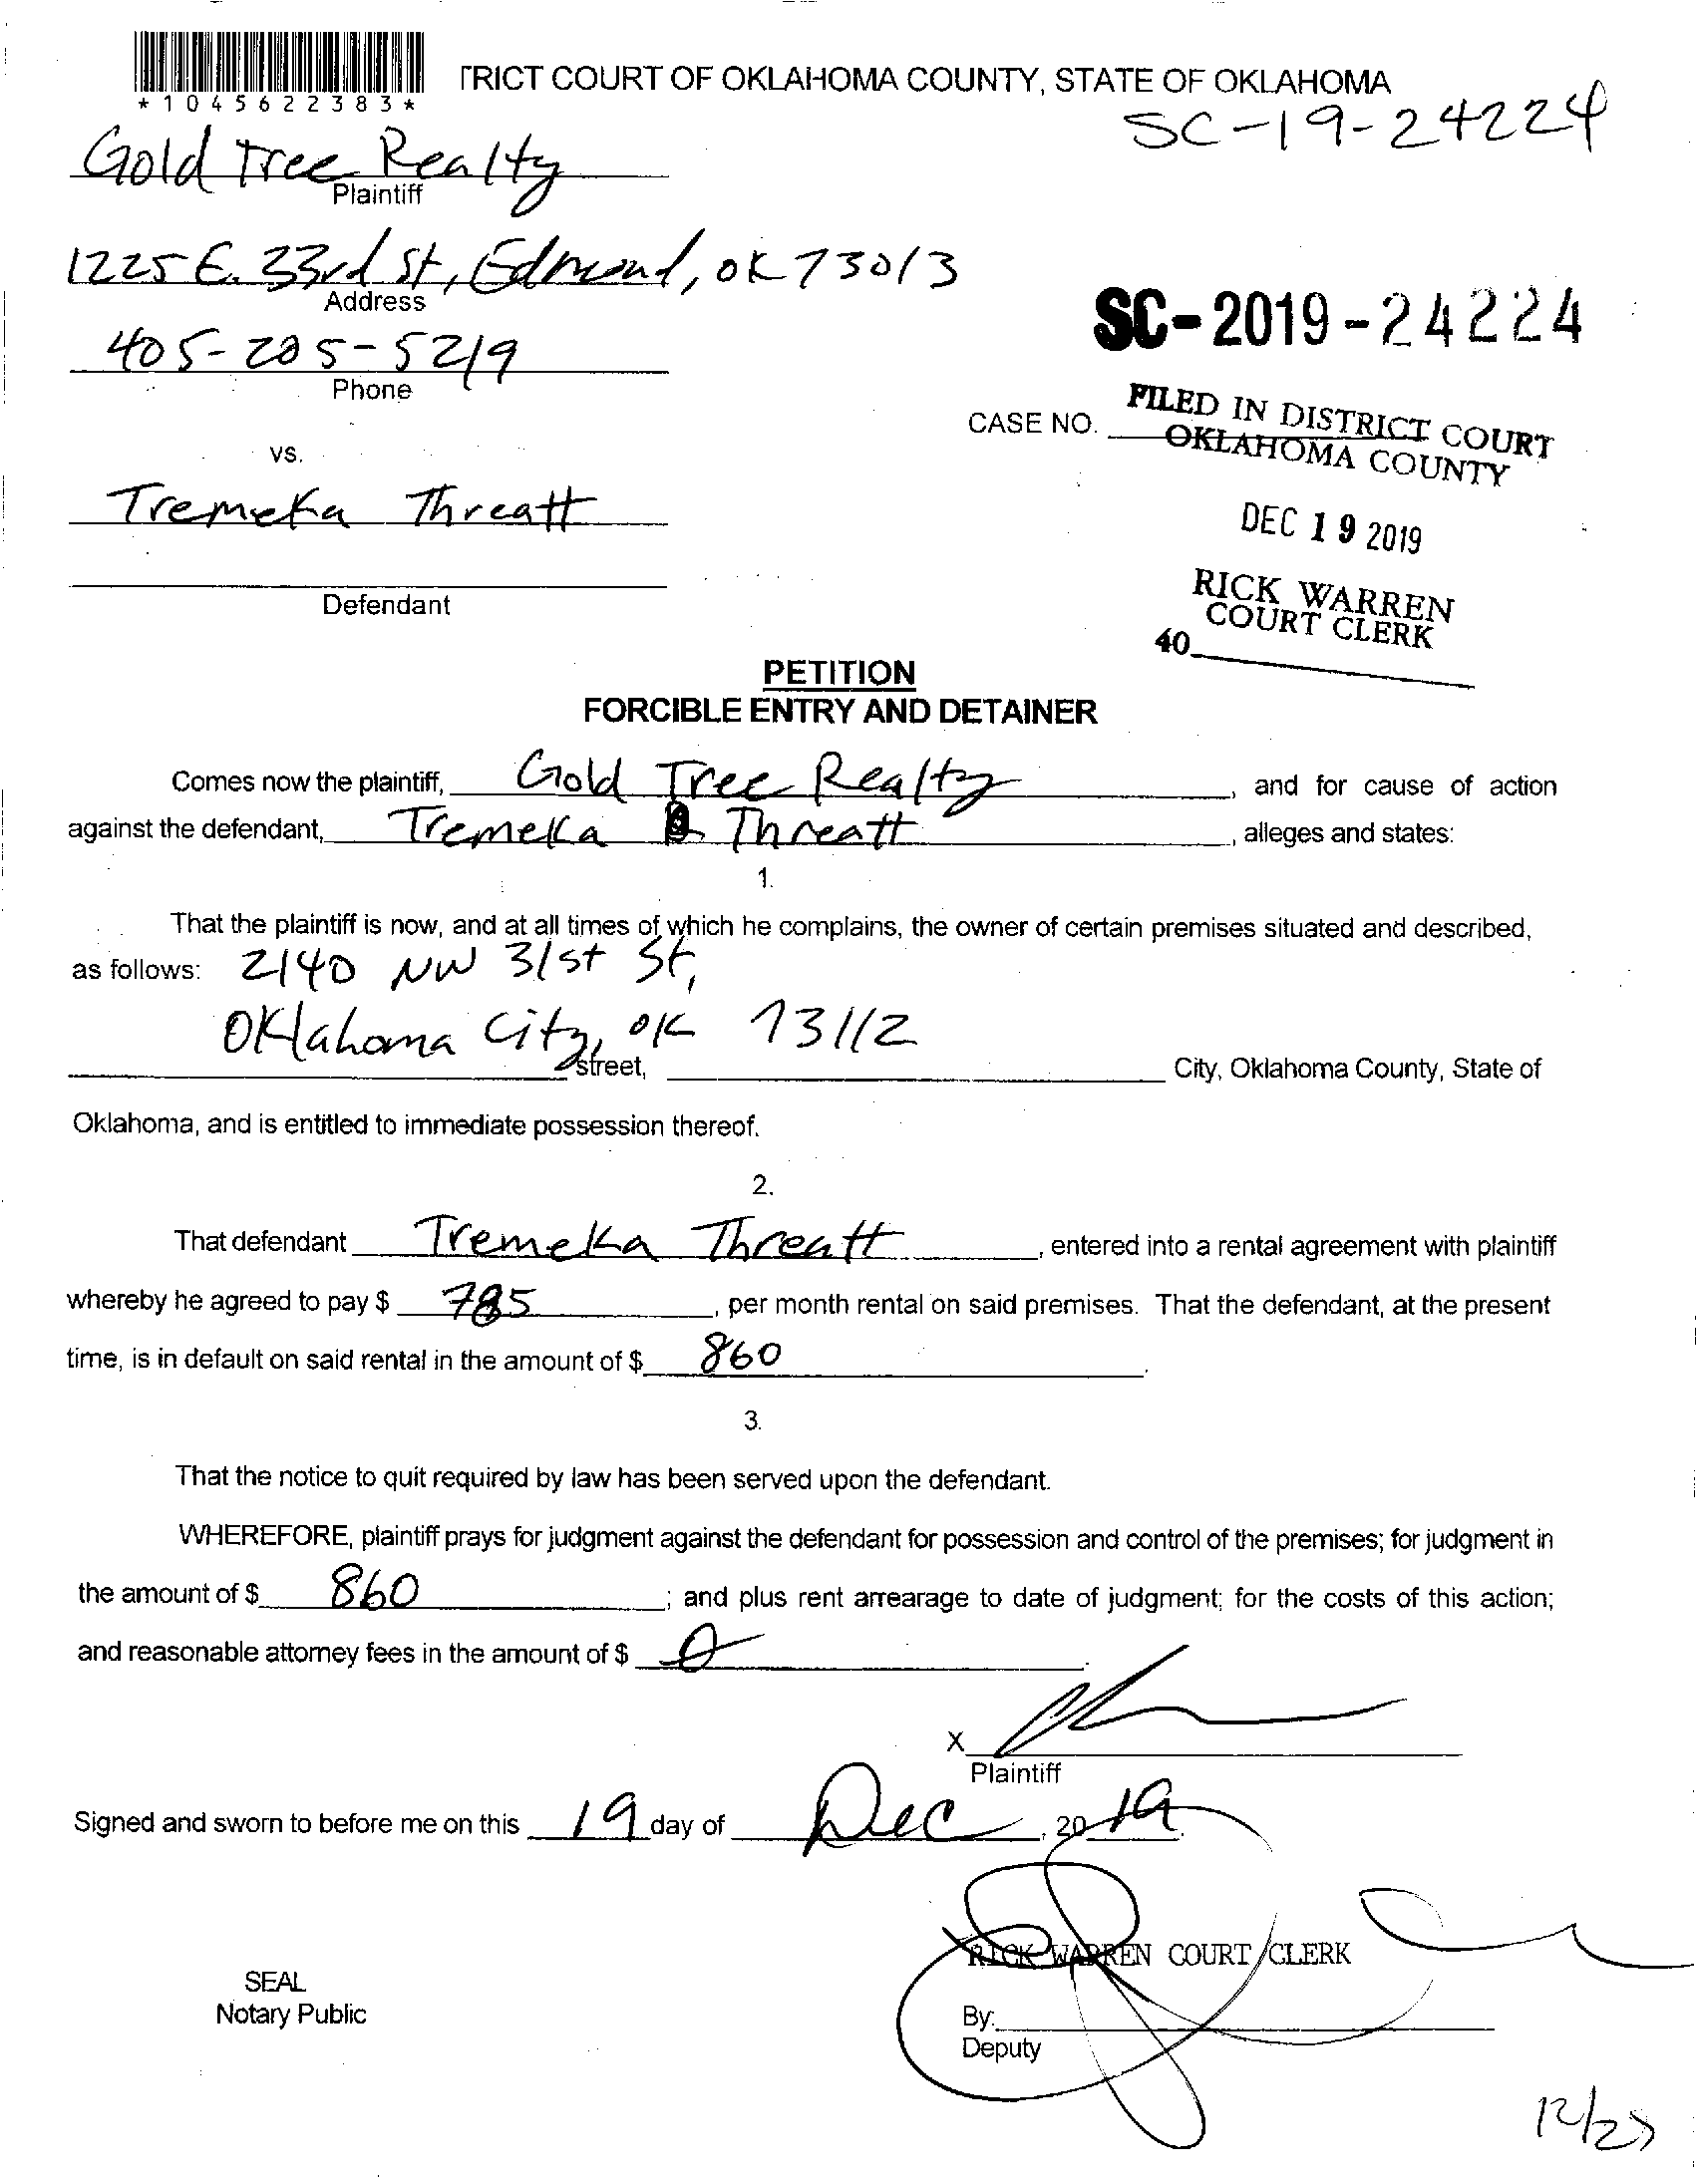 *1045622383*
TRICT COURT OF OKLAHOMA COUNTY, STATE OF OKLAHOMA
SC-19-24224
Gold Tree Realty
Plaintiff
1225 E. 33rd St, Edmond, OK 73013
Address
SC-2019-24224
405-205-5219
Phone
CASE NO.
FILED IN DISTRICT COURT
OKLAHOMA COUNTY
vs.
Tremeka Threatt
DEC 19 2019
Defendant
RICK WARREN
COURT CLERK
40
PETITION
FORCIBLE ENTRY AND DETAINER
Comes now the plaintiff, Gold Tree Realty, and for cause of action
against the defendant, Tremeka Threatt, alleges and states:
1.
That the plaintiff is now, and at all times of which he complains, the owner of certain premises situated and described,
as follows: 2140 NW 31st St,
Oklahoma City, OK 73112
street, City, Oklahoma County, State of
Oklahoma, and is entitled to immediate possession thereof.
2.
That defendant Tremeka Threatt, entered into a rental agreement with plaintiff
whereby he agreed to pay $ 785, per month rental on said premises. That the defendant, at the present
time, is in default on said rental in the amount of $ 860.
3.
That the notice to quit required by law has been served upon the defendant.
WHEREFORE, plaintiff prays for judgment against the defendant for possession and control of the premises; for judgment in
the amount of $ 860; and plus rent arrearage to date of judgment; for the costs of this action;
and reasonable attorney fees in the amount of $ 0.
X
Plaintiff
Signed and sworn to before me on this 19 day of Dec, 2019.
RICK WARREN COURT CLERK
SEAL
Notary Public
By:
Deputy